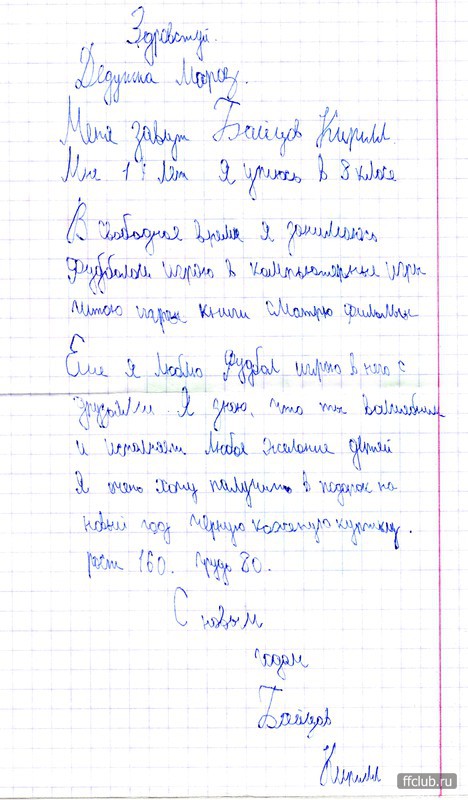 Здравствуй.
Дедушка Мороз.
Меня завут Байцов Кирилл.
Мне 11 лет Я учюсь в 8 класе
В свободная время я занимаюсь
футболом играю в компьютерные игры
читаю книги сматрю фильмы
Еще я люблю футбол играю в него с
друзьями. Я знаю, что ты волшебник
и исполняет любое желание детей
Я очень хочу палучить в подарок на
новый год черную кожаную куртку.
рост 160. грудь 80.
С новым
годом
Байцов
Кирилл
ffclub.ru